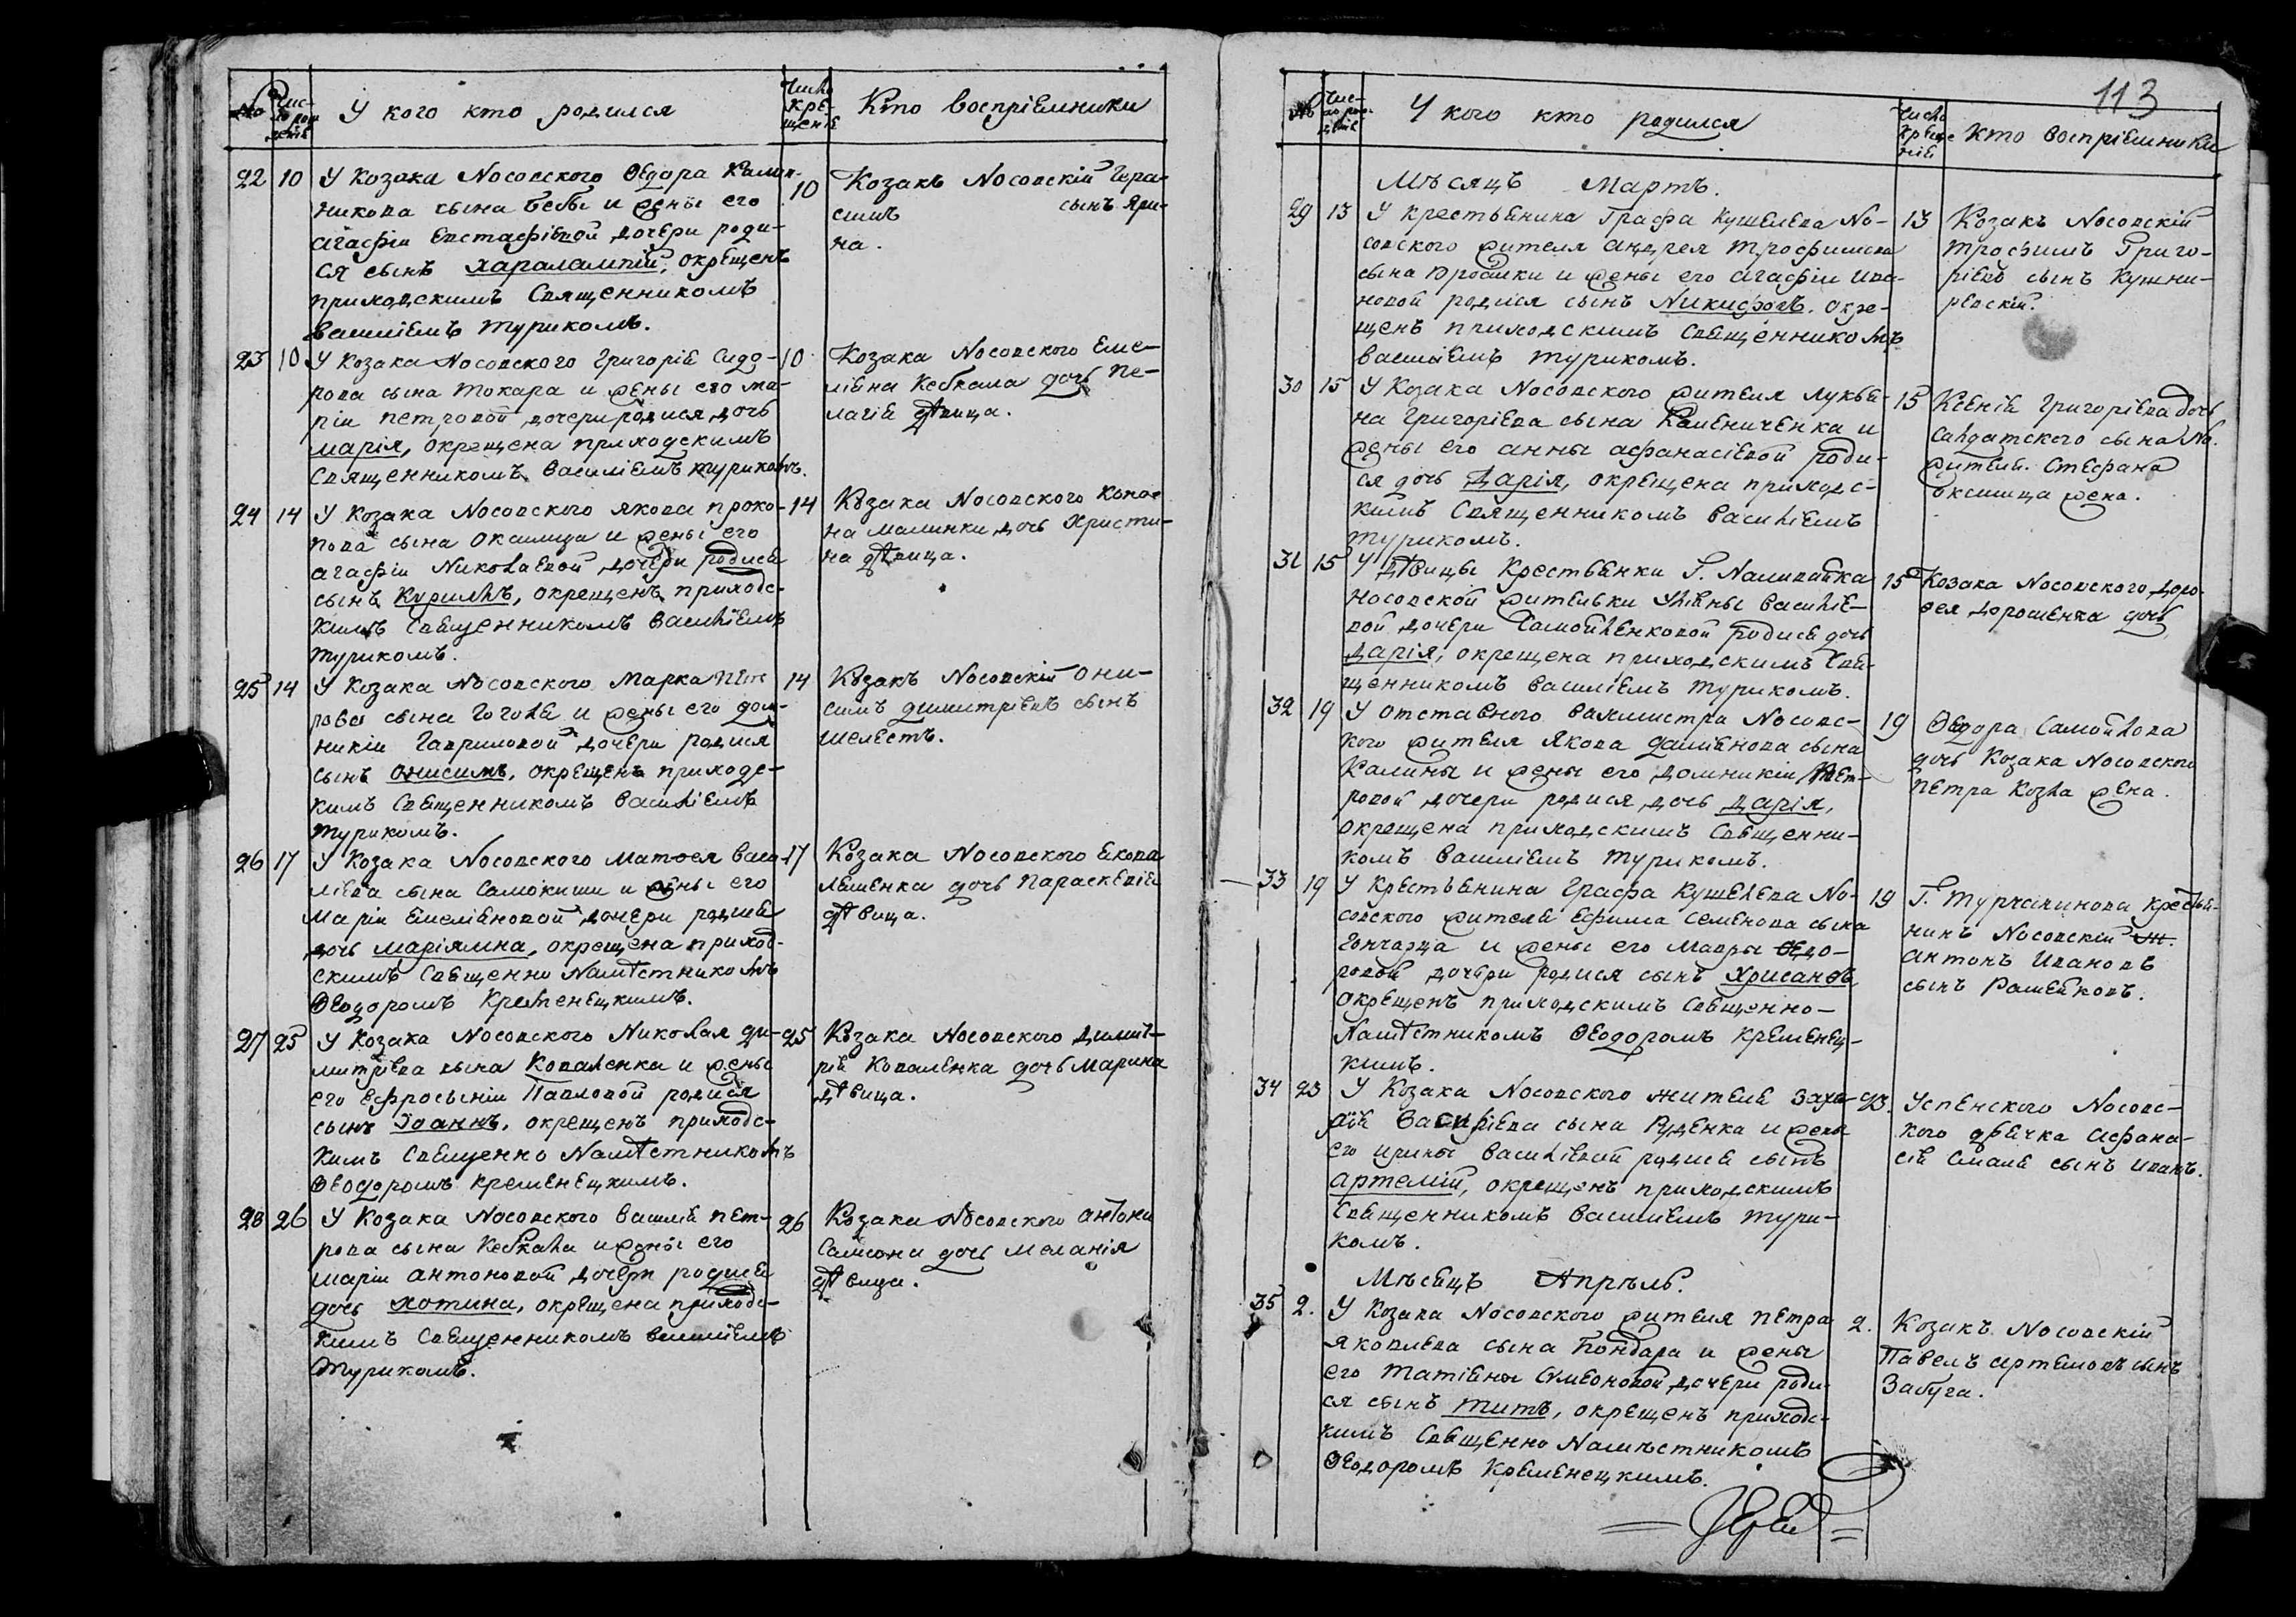 № Число рожденія У кого кто родился Число крещенія Кто воспріемники
22 10 У Козака Носовского Ѳедора
никова сына Бебы и жены его
агафіи Евстафіевой дочери роди-
ся сынъ Харалампій, окрещенъ
приходскимъ Священникомъ
василіемъ турикомъ.
10 Козакъ Носовскій Гера-
симъ сынъ Яри-
на.
23 10 У Козака Носовского Григорія Сидо-
рова сына Токара и жены его ма-
ріи петровой дочери родися дочь
марія, окрещена приходскимъ
Священникомъ василіемъ турикомъ.
10 Козака Носовского Еме-
ліяна Кебкала дочь Пе-
лагія дѣвица.
24 14 У Козака Носовского якова проко-
пова сына Оксамида и жены его
агафіи Николаевой дочери родися
сынъ Курилъ, окрещенъ приходс-
кимъ Священникомъ василіемъ
турикомъ.
14 Козака Носовского Коно-
на малинки дочь Христи-
на дѣвица.
25 14 У Козака Носовского Марка пет-
рова сына Гоголя и жены его дом-
никіи Гавриловой дочери родися
сынъ онисимъ, окрещенъ приходс-
кимъ Священникомъ василіемъ
турикомъ.
14 Козакъ Носовскій они-
симъ димитріевъ сынъ
шелестъ.
26 17 У Козака Носовского Матѳея васи-
ліева сына Самокиши и жены его
Маріи Емеліяновой дочери родися
дочь маріямна, окрещена приход-
скимъ Священно Намѣстникомъ
Ѳеодоромъ Кременецкимъ.
17 Козака Носовского Якова
лешенка дочь Параскевія
дѣвица.
27 25 У Козака Носовского Николая ди-
митріева сына Коваленка и жены
его Ефросыніи Павловой родися
сынъ Іоаннъ, окрещенъ приходс-
кимъ Священно Намѣстникомъ
Ѳеодоромъ Кременецкимъ.
25 Козака Носовского Димит-
рія Коваленка дочь Марина
дѣвица.
28 26 У Козака Носовского василія пет-
рова сына Кебкала и жены его
маріи антоновой дочери родися
дочь хотина, окрещена приходс-
кимъ Священникомъ василіемъ
турикомъ.
26 Козака Носовского антона
Самсона дочь меланія
дѣвица.
113
№ Число рожденія У кого кто родился Число крещенія Кто воспріемники
Мѣсяцъ Мартъ.
29 13 У крестьянина Графа Кушелева Но-
совского жителя андрея трофимова
сына и жены его агафіи ива-
новой родися сынъ Никифоръ. окре-
щенъ приходскимъ Священникомъ
василіемъ турикомъ.
13 Козакъ Носовскій
трофимъ Григо-
ріевъ сынъ
30 15 У Козака Носовского жителя лукья-
на Григоріева сына Камениченка и
жены его анны афанасіевой роди-
ся дочь дарія, окрещена приходс-
кимъ Священникомъ василіемъ
турикомъ.
15 Ксенія Григоріева дочь
Салдатского сына Но.
жителя. Стефана
оксамида жена.
31 15 У дѣвицы Крестьянки Г. Наливайка
Носовской жительки Уліяны василіе-
вой дочери Самойленковой родися дочь
дарія, окрещена приходскимъ Свя-
щенникомъ василіемъ турикомъ.
15 Козака Носовского доро-
ѳея дорошенка дочь
32 19 У отставного вахмистра Носовс-
кого жителя Якова даміянова сына
Калины и жены его домникіи Пет-
ровой дочери родися дочь дарія,
окрещена приходскимъ Священни-
комъ василіемъ турикомъ.
19 Ѳедора Самойлова
дочь Козака Носовского
петра Козла жена.
33 19 У крестьянина Графа Кушелева Но-
совского жителя Ефима Семенова сына
Гончарца и жены его Мавры Ѳедо-
ровой дочери родися сынъ Хрисанѳъ
окрещенъ приходскимъ Священно-
Намѣстникомъ Ѳеодоромъ Кременец-
кимъ.
19 Г. Турчанинова крестья-
нинъ Носовскій ж.
антонъ Ивановъ
сынъ Рамейковъ.
34 23 У Козака Носовского жителя Заха-
рія Василіева сына Руденка и жены
его ирины василіевой родися сынъ
артемій, окрещенъ приходскимъ
Священникомъ василіемъ тури-
комъ.
23. Успенского Носовс-
кого дьячка афана-
сія Смаля сынъ иванъ.
Мѣсяцъ Апрѣль.
35 2. У Козака Носовского жителя петра
яковлева сына Бондара и жены
его татіяны Сумеоновой дочери роди-
ся сынъ титъ, окрещенъ приходс-
кимъ Священно Намѣстникомъ
Ѳеодоромъ Кременецкимъ.
2. Козакъ Носовскій
Павелъ артемовъ сынъ
Забуга.